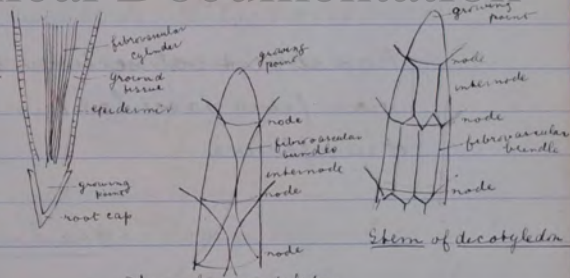 fibrovascular
cylinder
ground
tissue
epidermis
growing
point
root cap
growing
point
node
fibrovascular
bundle
internode
node
node
growing
point
node
internode
node
fibrovascular
bundle
node
Stem of decotyledon